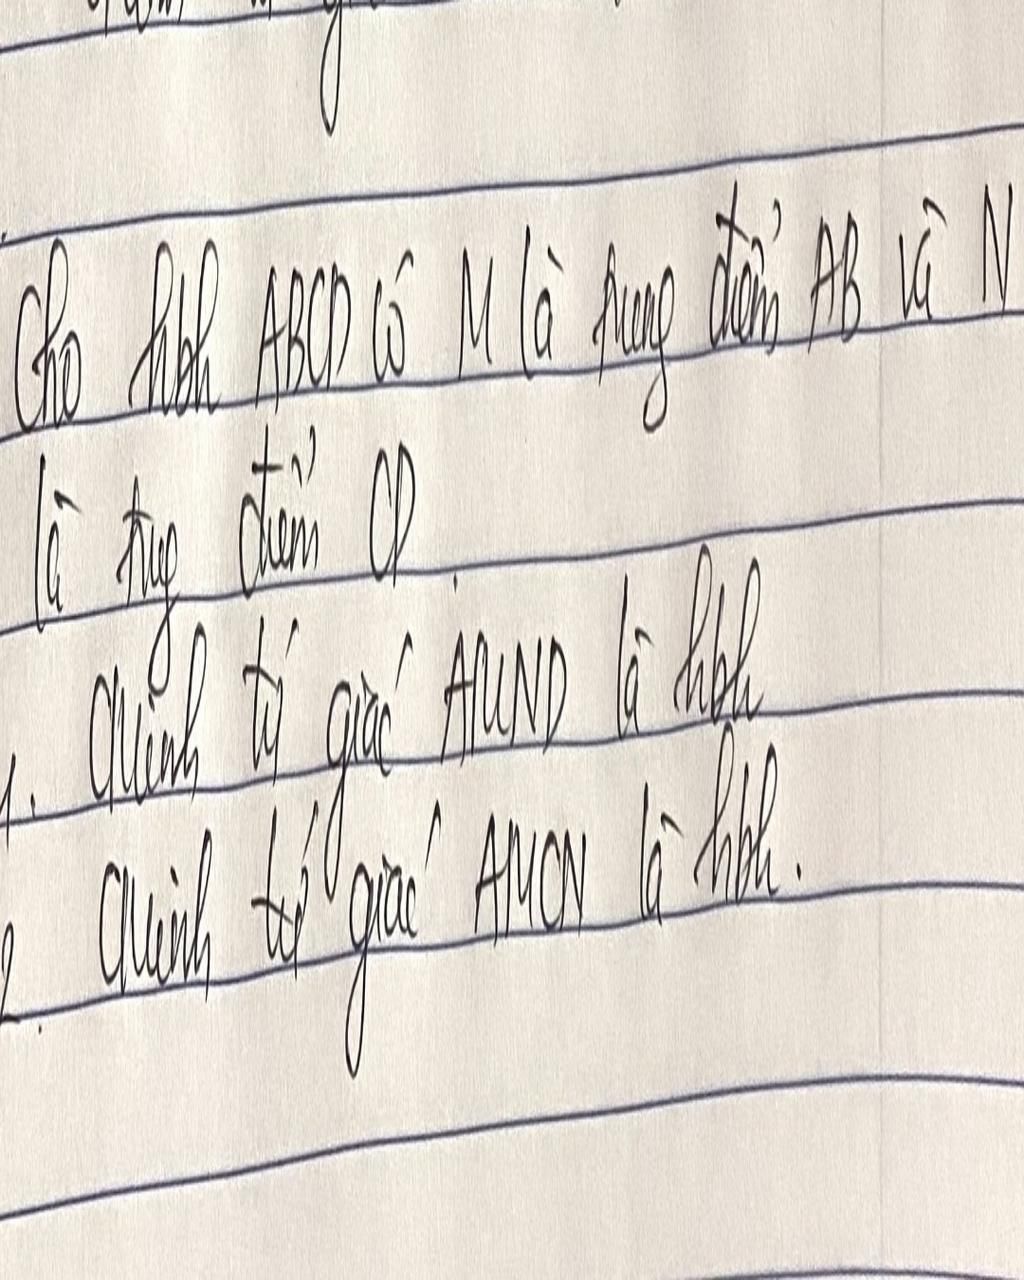 Cho hbh ABCD có M là trung điểm AB và N
là trung điểm CD
1. CMinh tứ giác AMND là hbh
2. CMinh tứ giác AMCN là hbh.